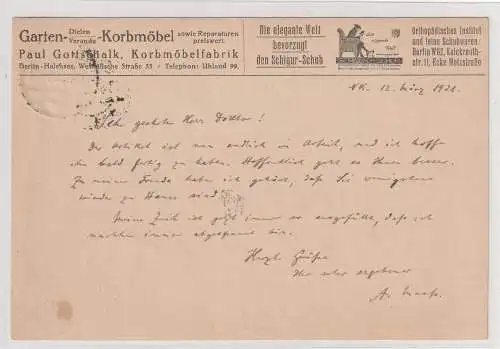 Garten- Dielen Veranda -Korbmöbel sowie Reparaturen preiswert
Paul Gottschalk, Korbmöbelfabrik
Berlin-Halensee, Westfälische Straße 55 - Telephon: Uhland 99.
Die elegante Welt
bevorzugt
den Schigur-Schuh
Orthopädisches Institut
und feine Schuhwaren
Berlin W62, Kalckreuth-
str. 11, Ecke Motzstraße
12. März 1921.
Sehr geehrter Herr Doktor!
Der Artikel ist nun endlich in Arbeit, und ich hoffe
ihn bald fertig zu haben. Hoffentlich geht es Ihnen besser.
Zu meiner Freude habe ich gehört, dass Sie wenigstens
wieder zu Hause sind.
Meine Zeit ist jetzt immer so ausgefüllt, dass ich
nachher immer abgespannt bin.
Herzl. Grüße
Ihr sehr ergebener
A.